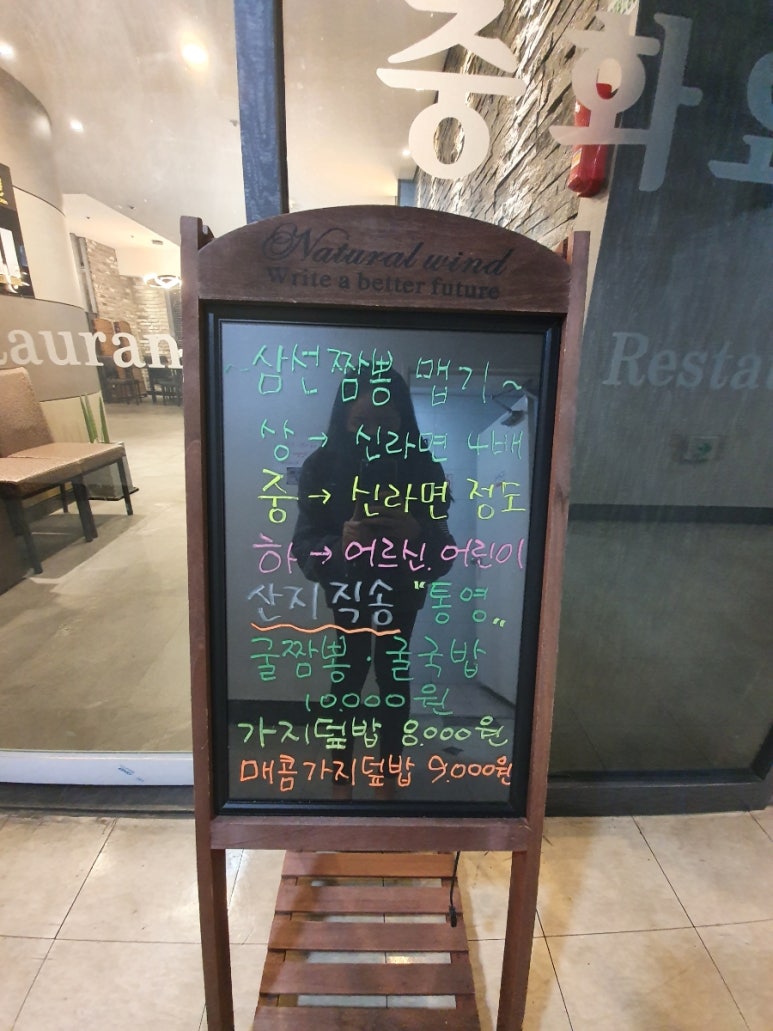 중화요
Natural wind
Write a better future
tauran
Resta
~삼선짬뽕 맵기~
상 → 신라면 4배
중 → 신라면 정도
하 → 어르신. 어린이
산지직송 "통영"
굴짬뽕 · 굴국밥
10.000원
가지덮밥 8.000원
매콤가지덮밥 9.000원